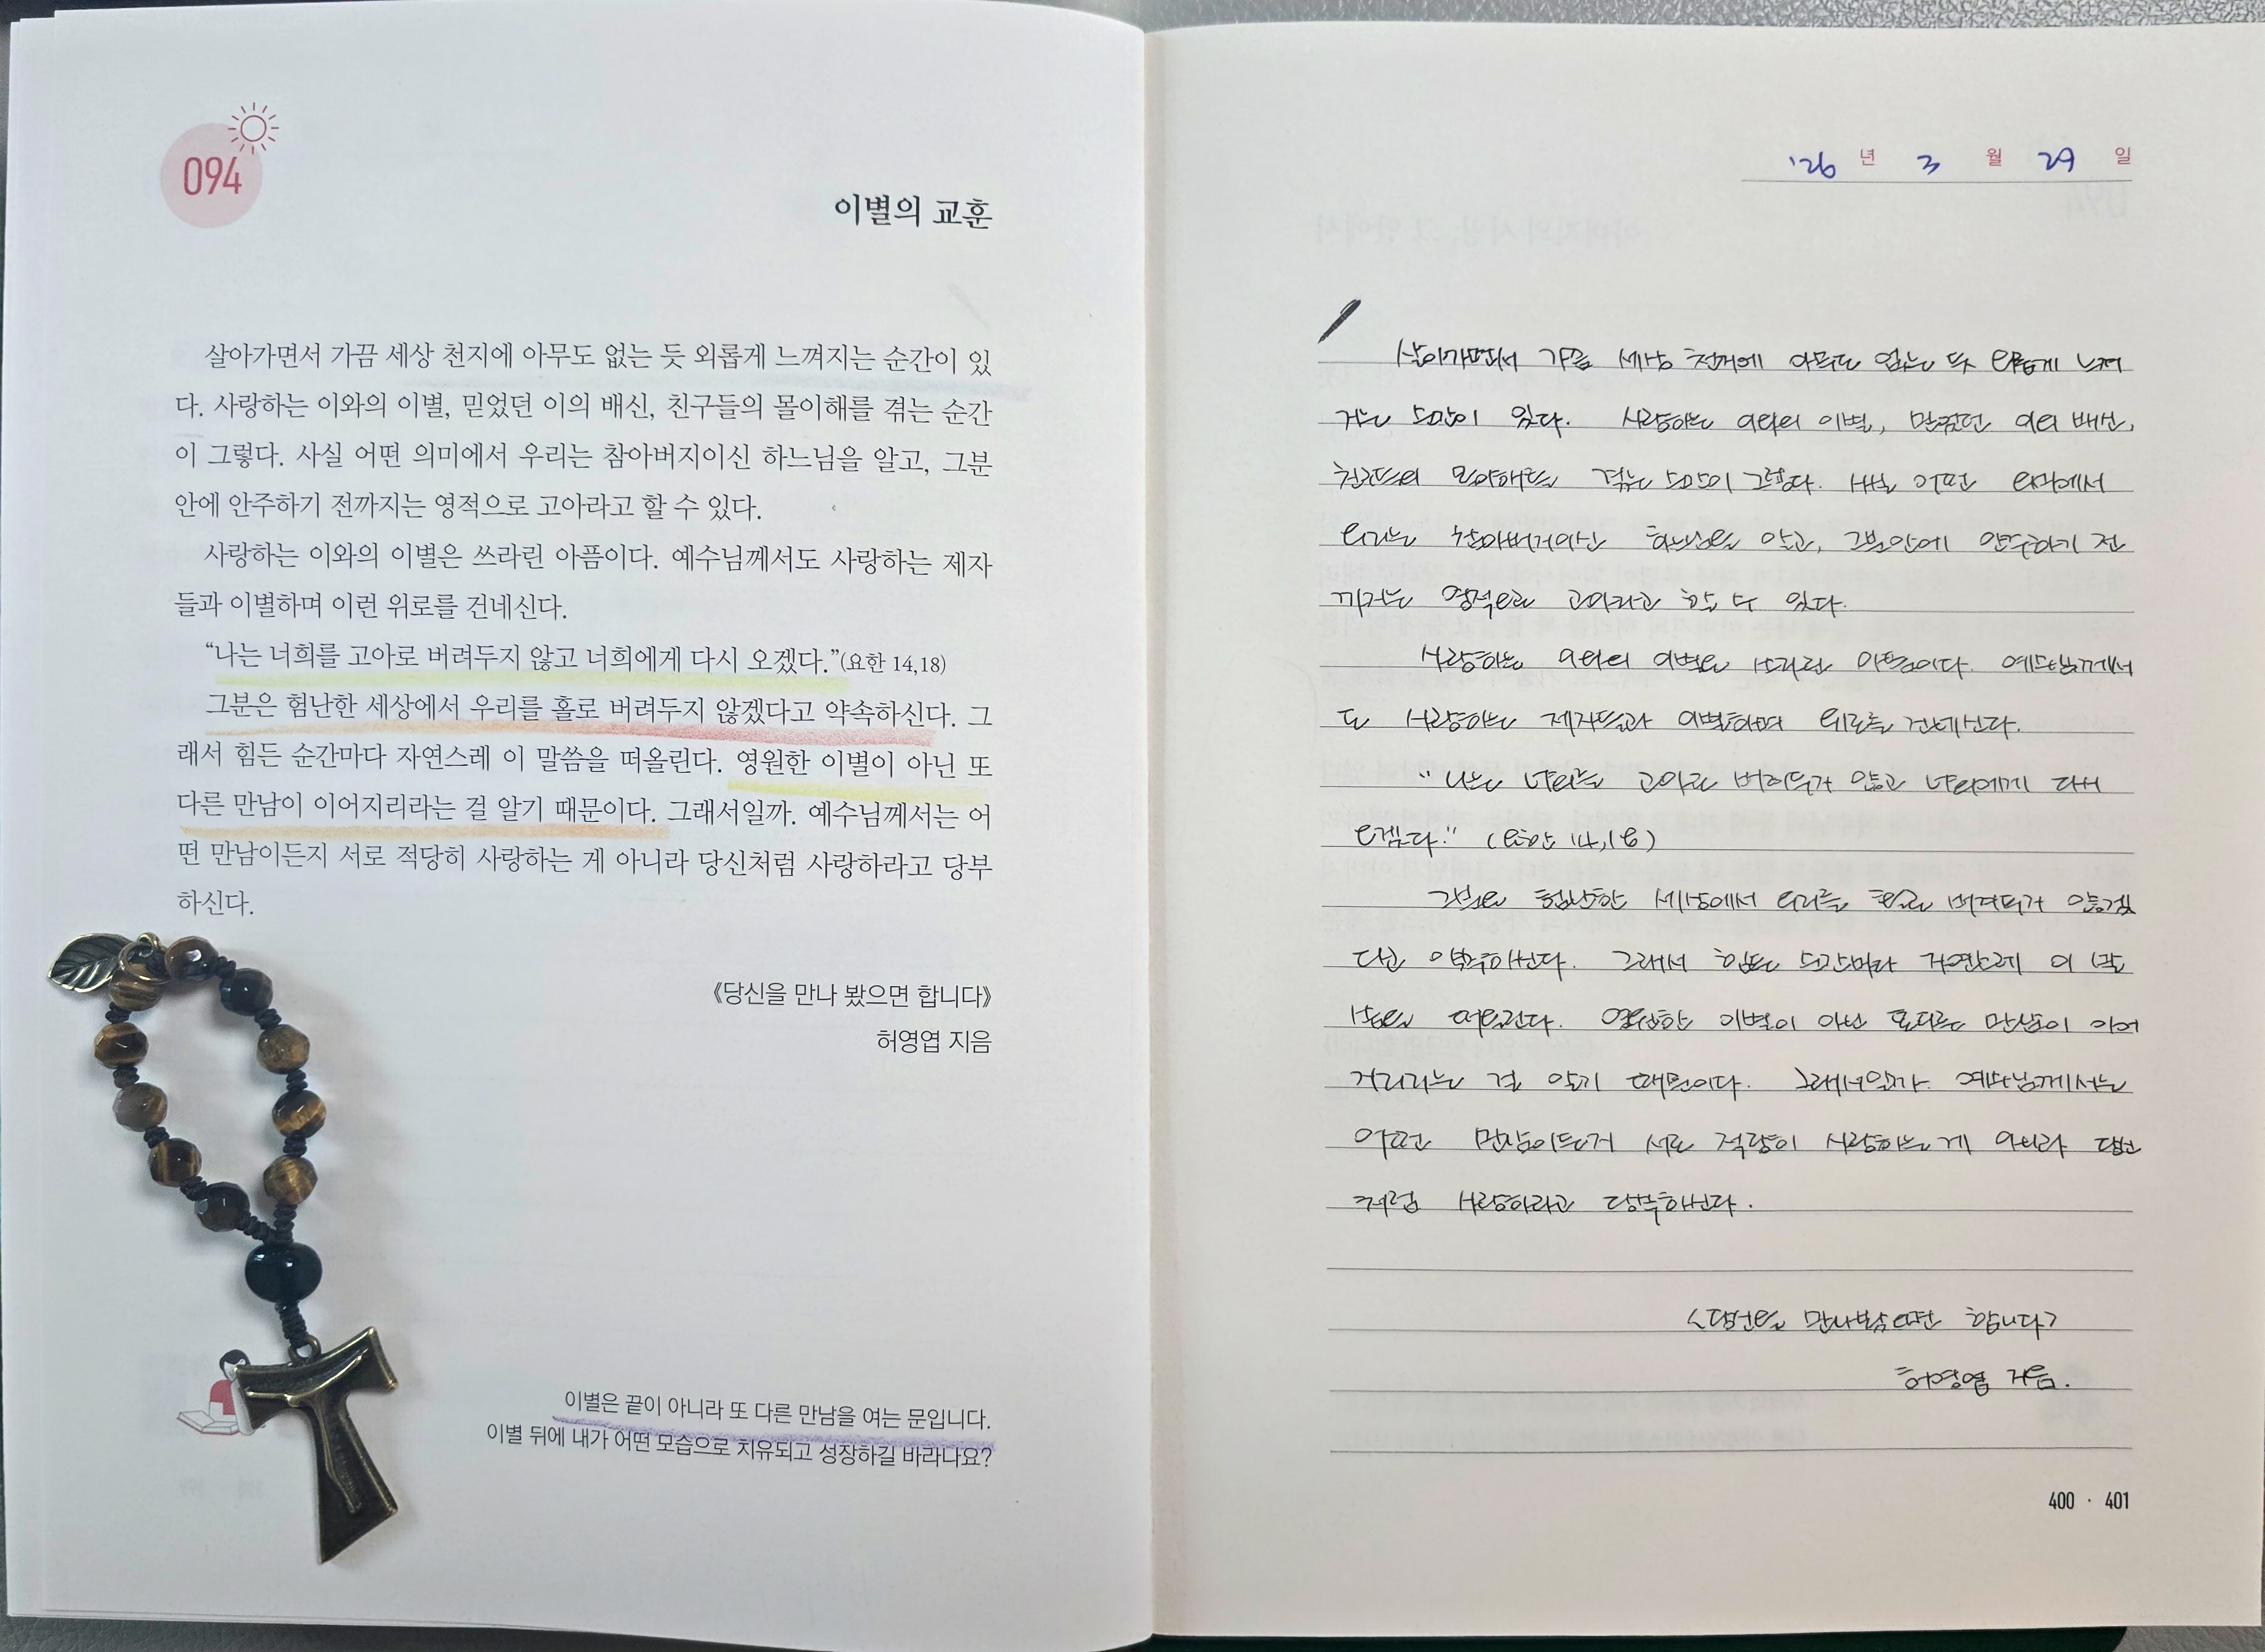 094
이별의 교훈
살아가면서 가끔 세상 천지에 아무도 없는 듯 외롭게 느껴지는 순간이 있
다. 사랑하는 이와의 이별, 믿었던 이의 배신, 친구들의 몰이해를 겪는 순간
이 그렇다. 사실 어떤 의미에서 우리는 참아버지이신 하느님을 알고, 그분
안에 안주하기 전까지는 영적으로 고아라고 할 수 있다.
사랑하는 이와의 이별은 쓰라린 아픔이다. 예수님께서도 사랑하는 제자
들과 이별하며 이런 위로를 건네신다.
“나는 너희를 고아로 버려두지 않고 너희에게 다시 오겠다.”(요한 14,18)
그분은 험난한 세상에서 우리를 홀로 버려두지 않겠다고 약속하신다. 그
래서 힘든 순간마다 자연스레 이 말씀을 떠올린다. 영원한 이별이 아닌 또
다른 만남이 이어지리라는 걸 알기 때문이다. 그래서일까. 예수님께서는 어
떤 만남이든지 서로 적당히 사랑하는 게 아니라 당신처럼 사랑하라고 당부
하신다.
《당신을 만나 봤으면 합니다》
허영엽 지음
이별은 끝이 아니라 또 다른 만남을 여는 문입니다.
이별 뒤에 내가 어떤 모습으로 치유되고 성장하길 바라나요?
'26 년 3 월 29 일
살아가면서 가끔 세상 천지에 아무도 없는 듯 외롭게 느껴
지는 순간이 있다. 사랑하는 이와의 이별, 믿었던 이의 배신,
친구들의 몰이해를 겪는 순간이 그렇다. 사실 어떤 의미에서
우리는 참아버지이신 하느님을 알고, 그분안에 안주하기 전
까지는 영적으로 고아라고 할 수 있다.
사랑하는 이와의 이별은 쓰라린 아픔이다. 예수님께서
도 사랑하는 제자들과 이별하며 위로를 건네신다.
"나는 너희를 고아로 버려두지 않고 너희에게 다시
오겠다." (요한 14,18)
그분은 험난한 세상에서 우리를 홀로 버려두지 않겠
다고 약속하신다. 그래서 힘든 순간마다 자연스레 이 말
씀을 떠올린다. 영원한 이별이 아닌 또다른 만남이 이어
지리라는 걸 알기 때문이다. 그래서일까. 예수님께서는
어떤 만남이든지 서로 적당히 사랑하는 게 아니라 당신
처럼 사랑하라고 당부하신다.
<당신을 만나봤으면 합니다>
허영엽 지음.
400 · 401